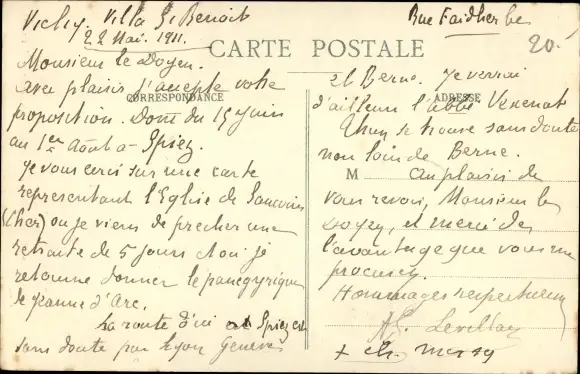 Vichy. Villa St Benoit
Rue Faidherbe
22 Mai. 1911.
20.-
CARTE POSTALE
CORRESPONDANCE
ADRESSE
Monsieur le Doyen.
avec plaisir j'accepte votre
proposition. Donc du 15 juin
au 1er Août à Spiez.
Je vous écris sur une carte
représentant l'Eglise de
(Cher) où je viens de prêcher une
retraite de 5 jours et où je
retourne donner le panégyrique
de Jeanne d'Arc.
La route d'ici à Spiez est
sans doute par Lyon Genève
et Berne. Je verrai
d'ailleurs l'abbé
Thun se trouve sans doute
non loin de Berne.
M
Au plaisir de
vous revoir, Monsieur le
Doyen, et merci de
l'avantage que vous me
procurez.
Hommages respectueux